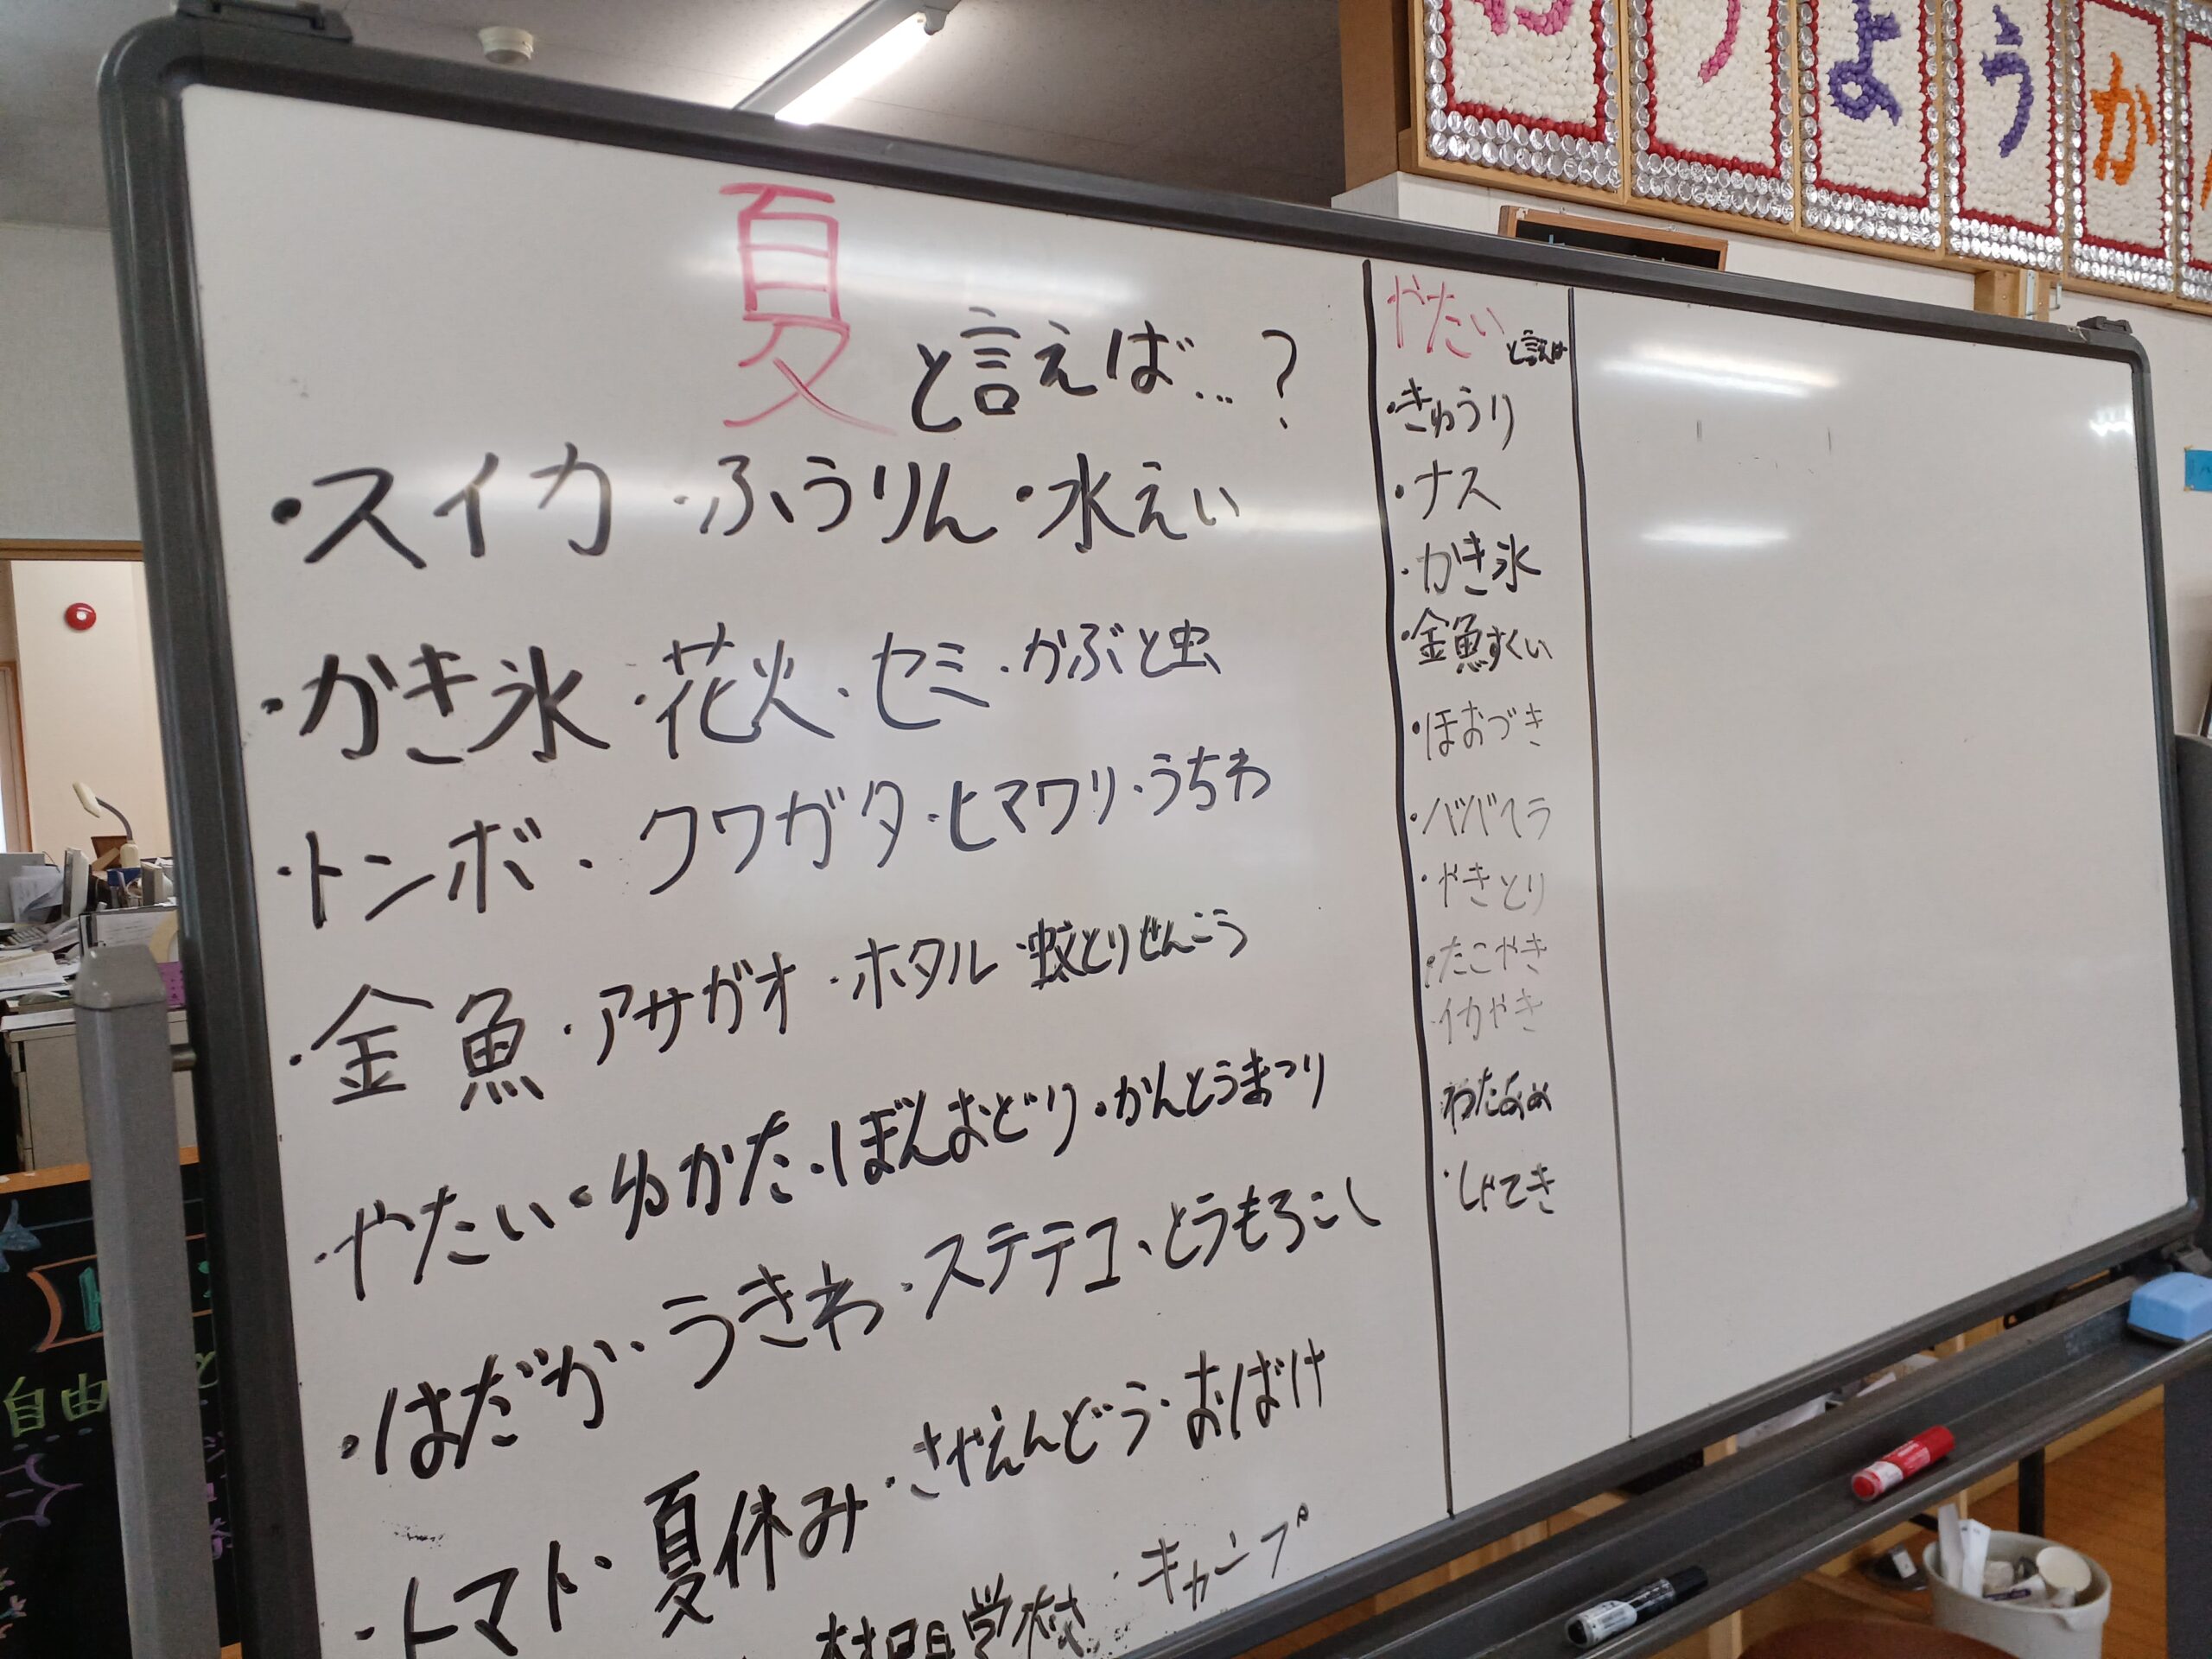 夏と言えば…？
・スイカ・ふうりん・水えい
・かき氷・花火・セミ・かぶと虫
・トンボ・クワガタ・ヒマワリ・うちわ
・金魚・アサガオ・ホタル・蚊とりせんこう
・やたい・ゆかた・ぼんおどり・かんとうまつり
・はだか・うきわ・ステテコ、とうもろこし
・トマト・夏休み・さやえんどう・おばけ
・林間学校・キャンプ
やたいと言えば
・きゅうり
・ナス
・かき氷
・金魚すくい
・ほおづき
・ババヘラ
・やきとり
・たこやき
・イカやき
わたあめ
・しゃてき
ょうか
自由